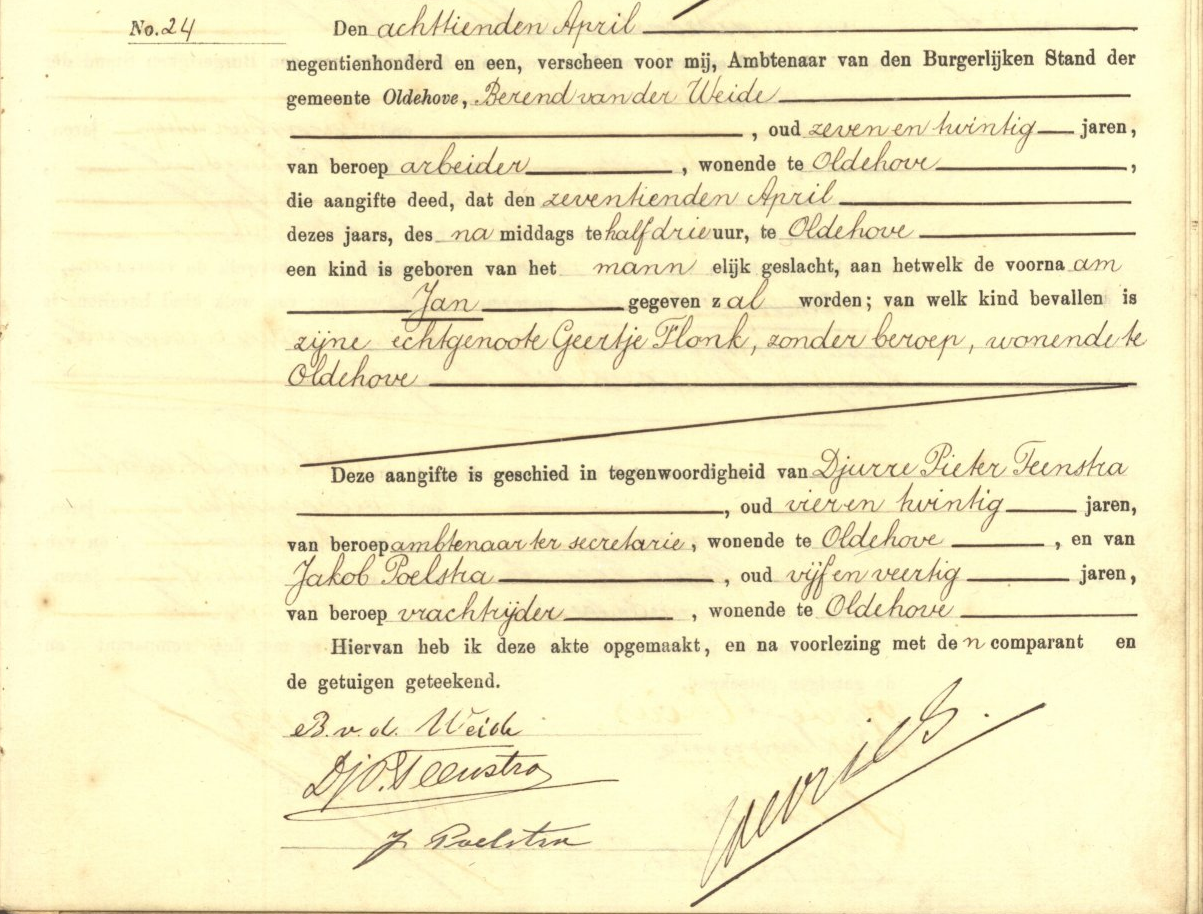 No. 24 Den achttienden April
negentienhonderd en een, verscheen voor mij, Ambtenaar van den Burgerlijken Stand der
gemeente Oldehove, Berend van der Weide
, oud zeven en twintig jaren,
van beroep arbeider, wonende te Oldehove,
die aangifte deed, dat den zeventienden April
dezes jaars, des na middags te half drie uur, te Oldehove
een kind is geboren van het mann elijk geslacht, aan hetwelk de voorna am
Jan gegeven z al worden; van welk kind bevallen is
zijne echtgenoote Geertje Flonk, zonder beroep, wonende te
Oldehove
Deze aangifte is geschied in tegenwoordigheid van Djurre Pieter Teenstra
, oud vier en twintig jaren,
van beroep ambtenaar ter secretarie, wonende te Oldehove, en van
Jakob Poelstra, oud vijf en veertig jaren,
van beroep vrachtrijder, wonende te Oldehove
Hiervan heb ik deze akte opgemaakt, en na voorlezing met de n comparant en
de getuigen geteekend.
B. v. d. Weide
Dj. P. Teenstra
J Poelstra